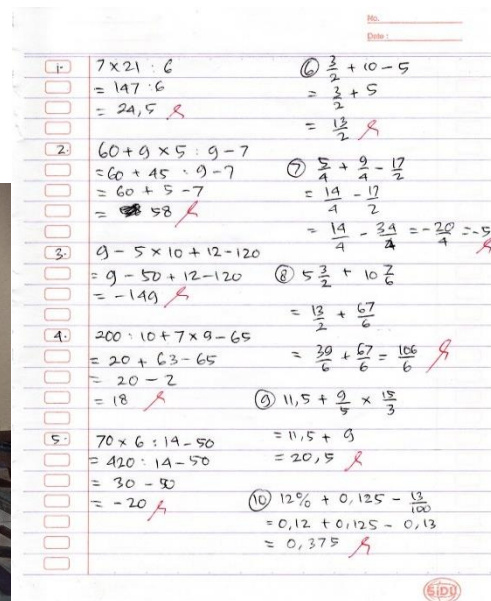 No.
Date :
1. 7 x 21 : 6
= 147 : 6
= 24,5
2. 60 + 9 x 5 : 9 - 7
= 60 + 45 : 9 - 7
= 60 + 5 - 7
= 58
3. 9 - 5 x 10 + 12 - 120
= 9 - 50 + 12 - 120
= -149
4. 200 : 10 + 7 x 9 - 65
= 20 + 63 - 65
= 20 - 2
= 18
5. 70 x 6 : 14 - 50
= 420 : 14 - 50
= 30 - 50
= -20
6 3/2 + 10 - 5
= 3/2 + 5
= 13/2
7 5/4 + 9/4 - 17/2
= 14/4 - 17/2
= 14/4 - 34/4 = -20/4 = -5
8 5 3/2 + 10 7/6
= 13/2 + 67/6
= 39/6 + 67/6 = 106/6
9 11,5 + 9/5 x 15/3
= 11,5 + 9
= 20,5
10 12% + 0,125 - 13/100
= 0,12 + 0,125 - 0,13
= 0,375
SIDU